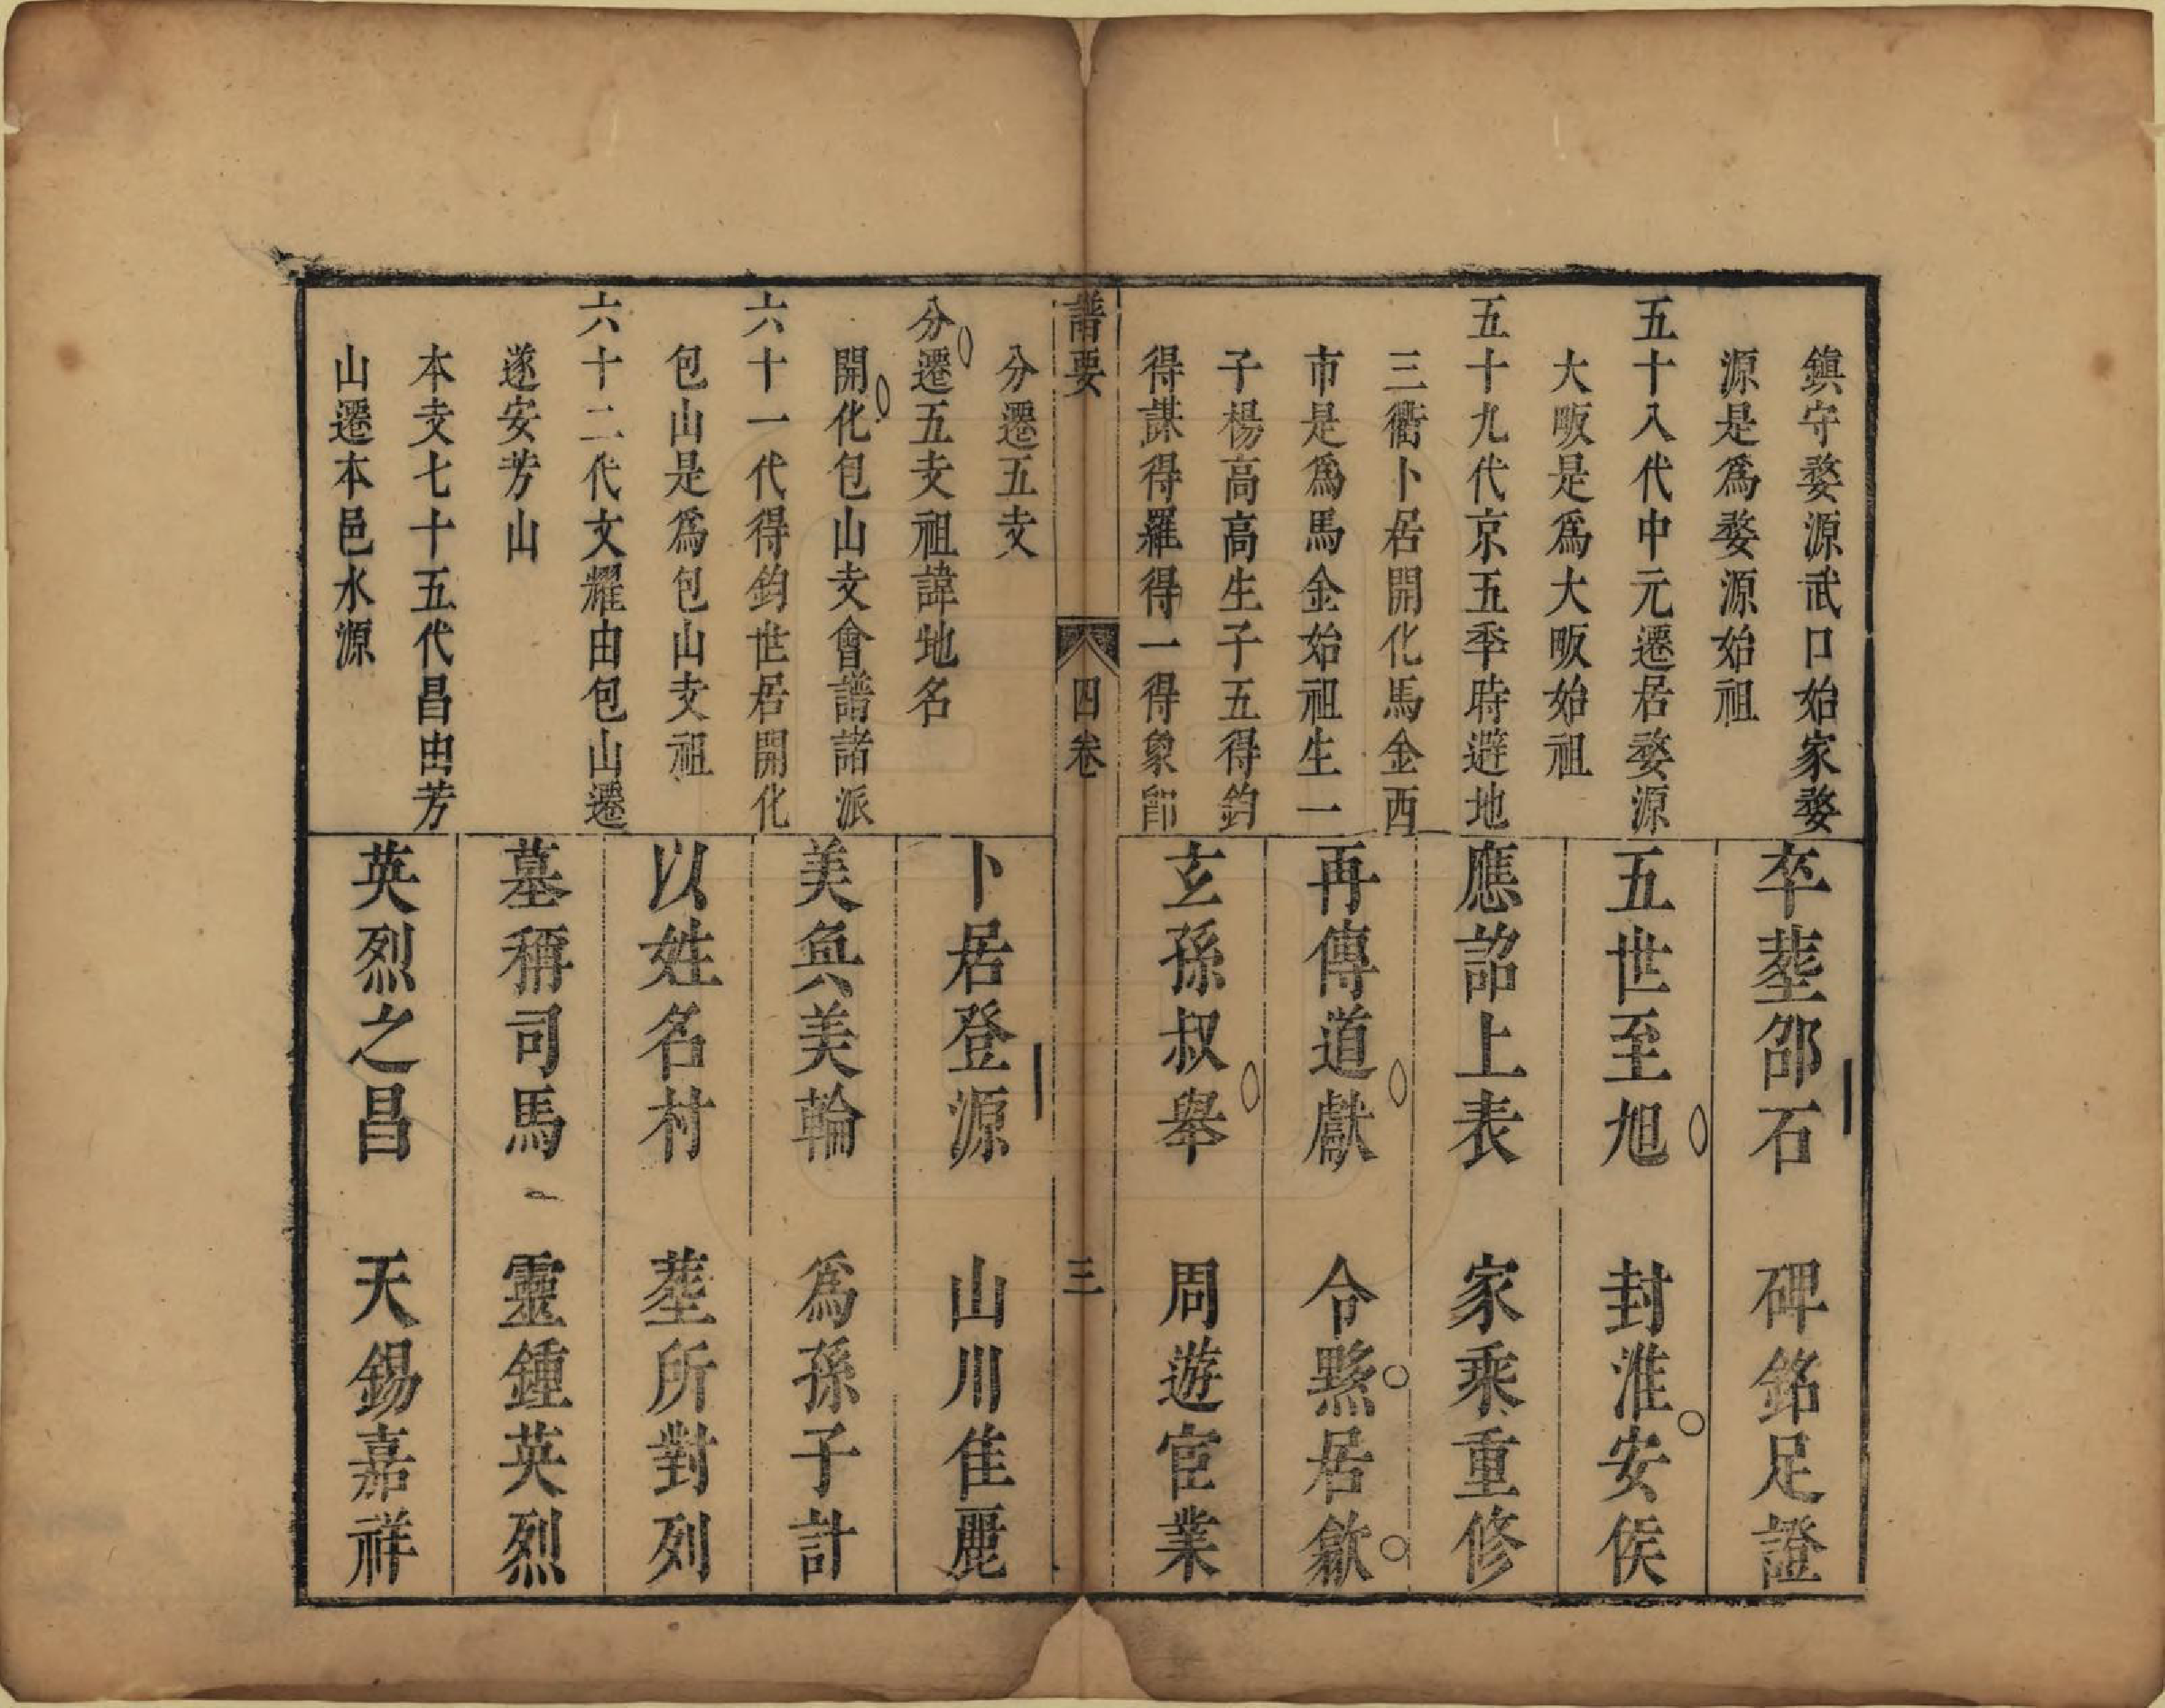 鎮守婺源武口始家婺
源是爲婺源始祖
五十八代中元遷居婺源
大畈是爲大畈始祖
五十九代京五季時避地
三衢卜居開化馬金西
市是爲馬金始祖生一
子楊高高生子五得鈞
得謀得羅得一得象卽
卒塟邵石 碑銘足證
五世至旭 封淮安侯
應詔上表 家乘重修
再傳道獻 令黟居歙
玄孫叔舉 周遊宦業
譜要 四卷 三
分遷五支
分遷五支祖諱地名
開化包山支會譜諸派
六十一代得鈞世居開化
包山是爲包山支祖
六十二代文耀由包山遷
遂安芳山
本支七十五代昌由芳
山遷本邑水源
卜居登源 山川佳麗
美奐美輪 爲孫子計
以姓名村 塟所對列
墓稱司馬 靈鍾英烈
英烈之昌 天錫嘉祥